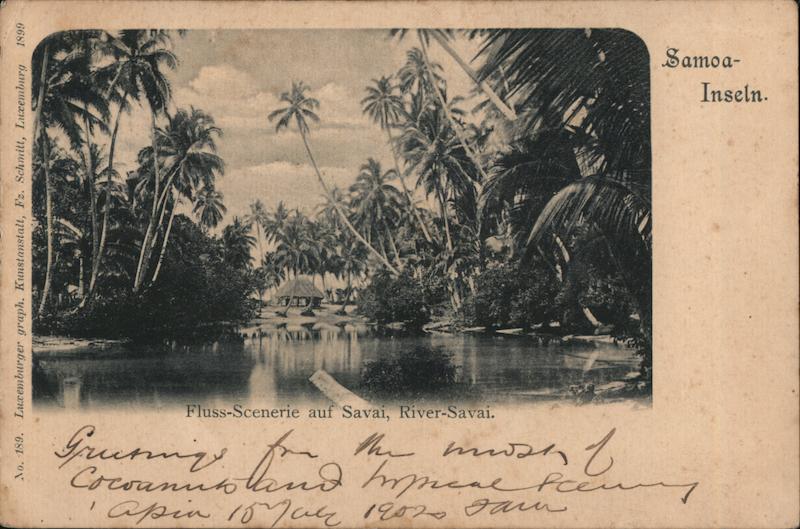 Samoa-
Inseln.
No. 189. Luxemburger graph. Kunstanstalt, Fz. Schmitt, Luxemburg 1899
Fluss-Scenerie auf Savai, River-Savai.
Greetings from the midst of
Cocoanuts and tropical Scenery
Apia 15 July 1902